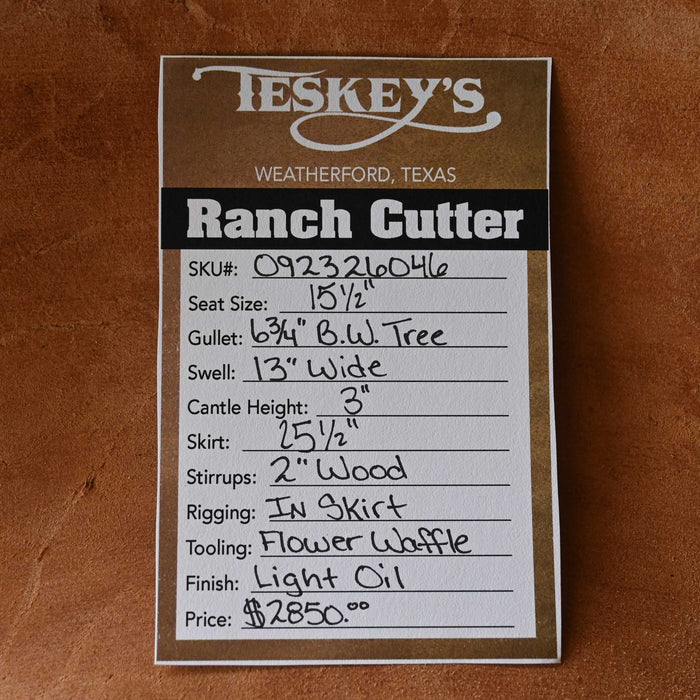 TESKEY'S
WEATHERFORD, TEXAS
Ranch Cutter
SKU#: 092326046
Seat Size: 15 1/2"
Gullet: 6 3/4" B.W. Tree
Swell: 13" Wide
Cantle Height: 3"
Skirt: 25 1/2"
Stirrups: 2" Wood
Rigging: In Skirt
Tooling: Flower Waffle
Finish: Light Oil
Price: $2850.00